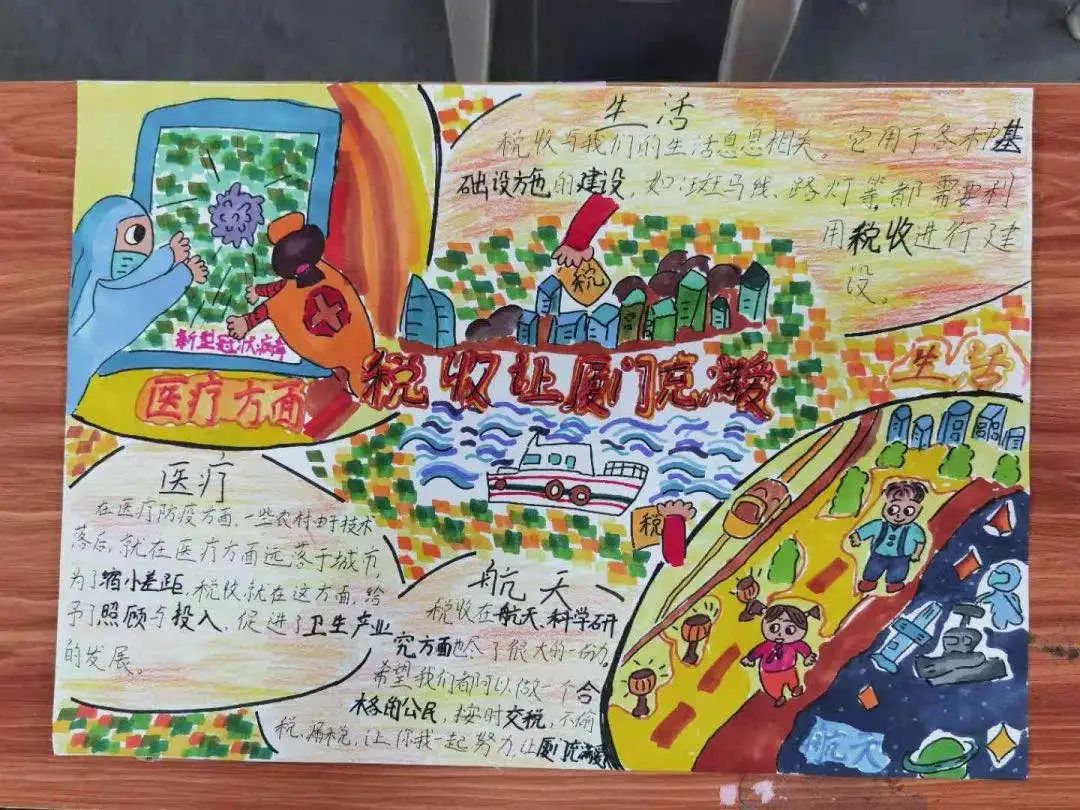 生活
税收与我们的生活息息相关。它用于各种基
础设施的建设，如斑马线、路灯等都需要利
用税收进行建
设。
税
新型冠状病毒
医疗方面
税收让厦门充满爱
生活
医疗
在医疗防疫方面，一些农村由于技术
落后，就在医疗方面远落于城市，
为了缩小差距，税收就在这方面，给
予了照顾与投入，促进了卫生产业
的发展。
税
航天
税收在航天、科学研
究方面也出了很大的一份力。
希望我们都可以做一个合
格的公民，按时交税，不偷
税、漏税，让你我一起努力，让厦门充满爱
航天